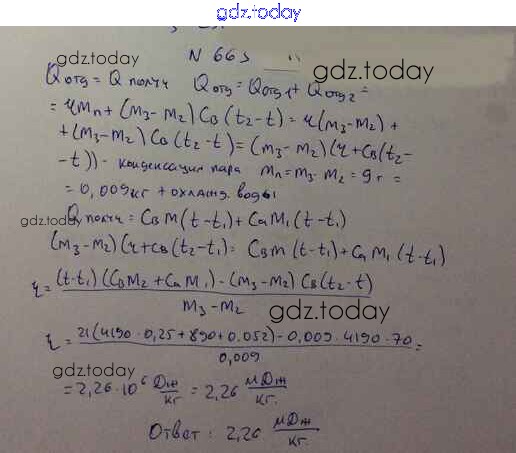 gdz.today
N 663
gdz.today gdz.today
Qотд = Q получ Qотд = Qотд1 + Qотд2 =
= rmп + (m3 - m2) Cв (t2 - t) = r(m3 - m2) +
+ (m3 - m2) Cв (t2 - t) = (m3 - m2) (r + Cв(t2 -
- t)) - конденсация пара mп = m3 - m2 = 9г =
= 0,009кг + охлажд. воды
gdz.today
Q получ = Cвm(t - t1) + Cam1(t - t1)
(m3 - m2)(r + Cв(t2 - t1) = Cвm (t - t1) + Cam1 (t - t1)
r = (t - t1)(Cвm2 + Cam1) - (m3 - m2) Cв(t2 - t)
m3 - m2
gdz.today
r = 21(4190 · 0,25 + 890 + 0.052) - 0,009 · 4190 · 70 =
0,009
gdz.today
= 2,26 · 10⁶ Дж/кг = 2,26 мДж/кг.
Ответ : 2,26 мДж/кг.
gdz.today